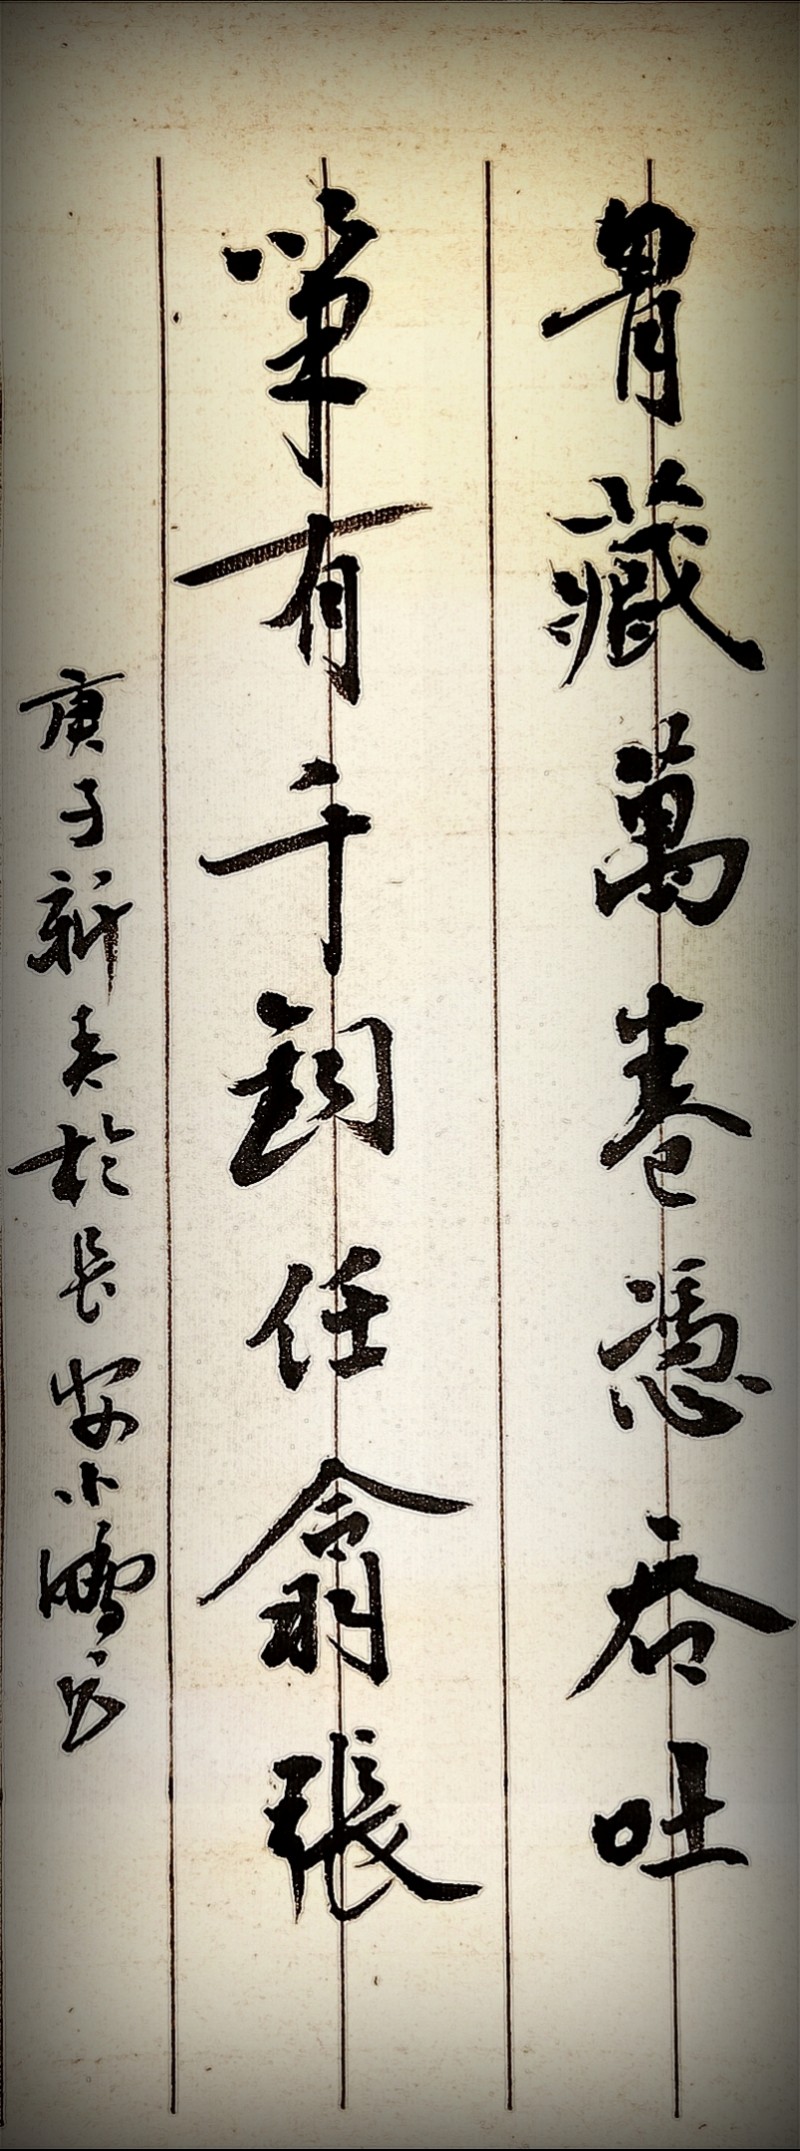 胷藏萬卷憑吞吐
筆有千鈞任翕張
庚子新春於長安小鵬書